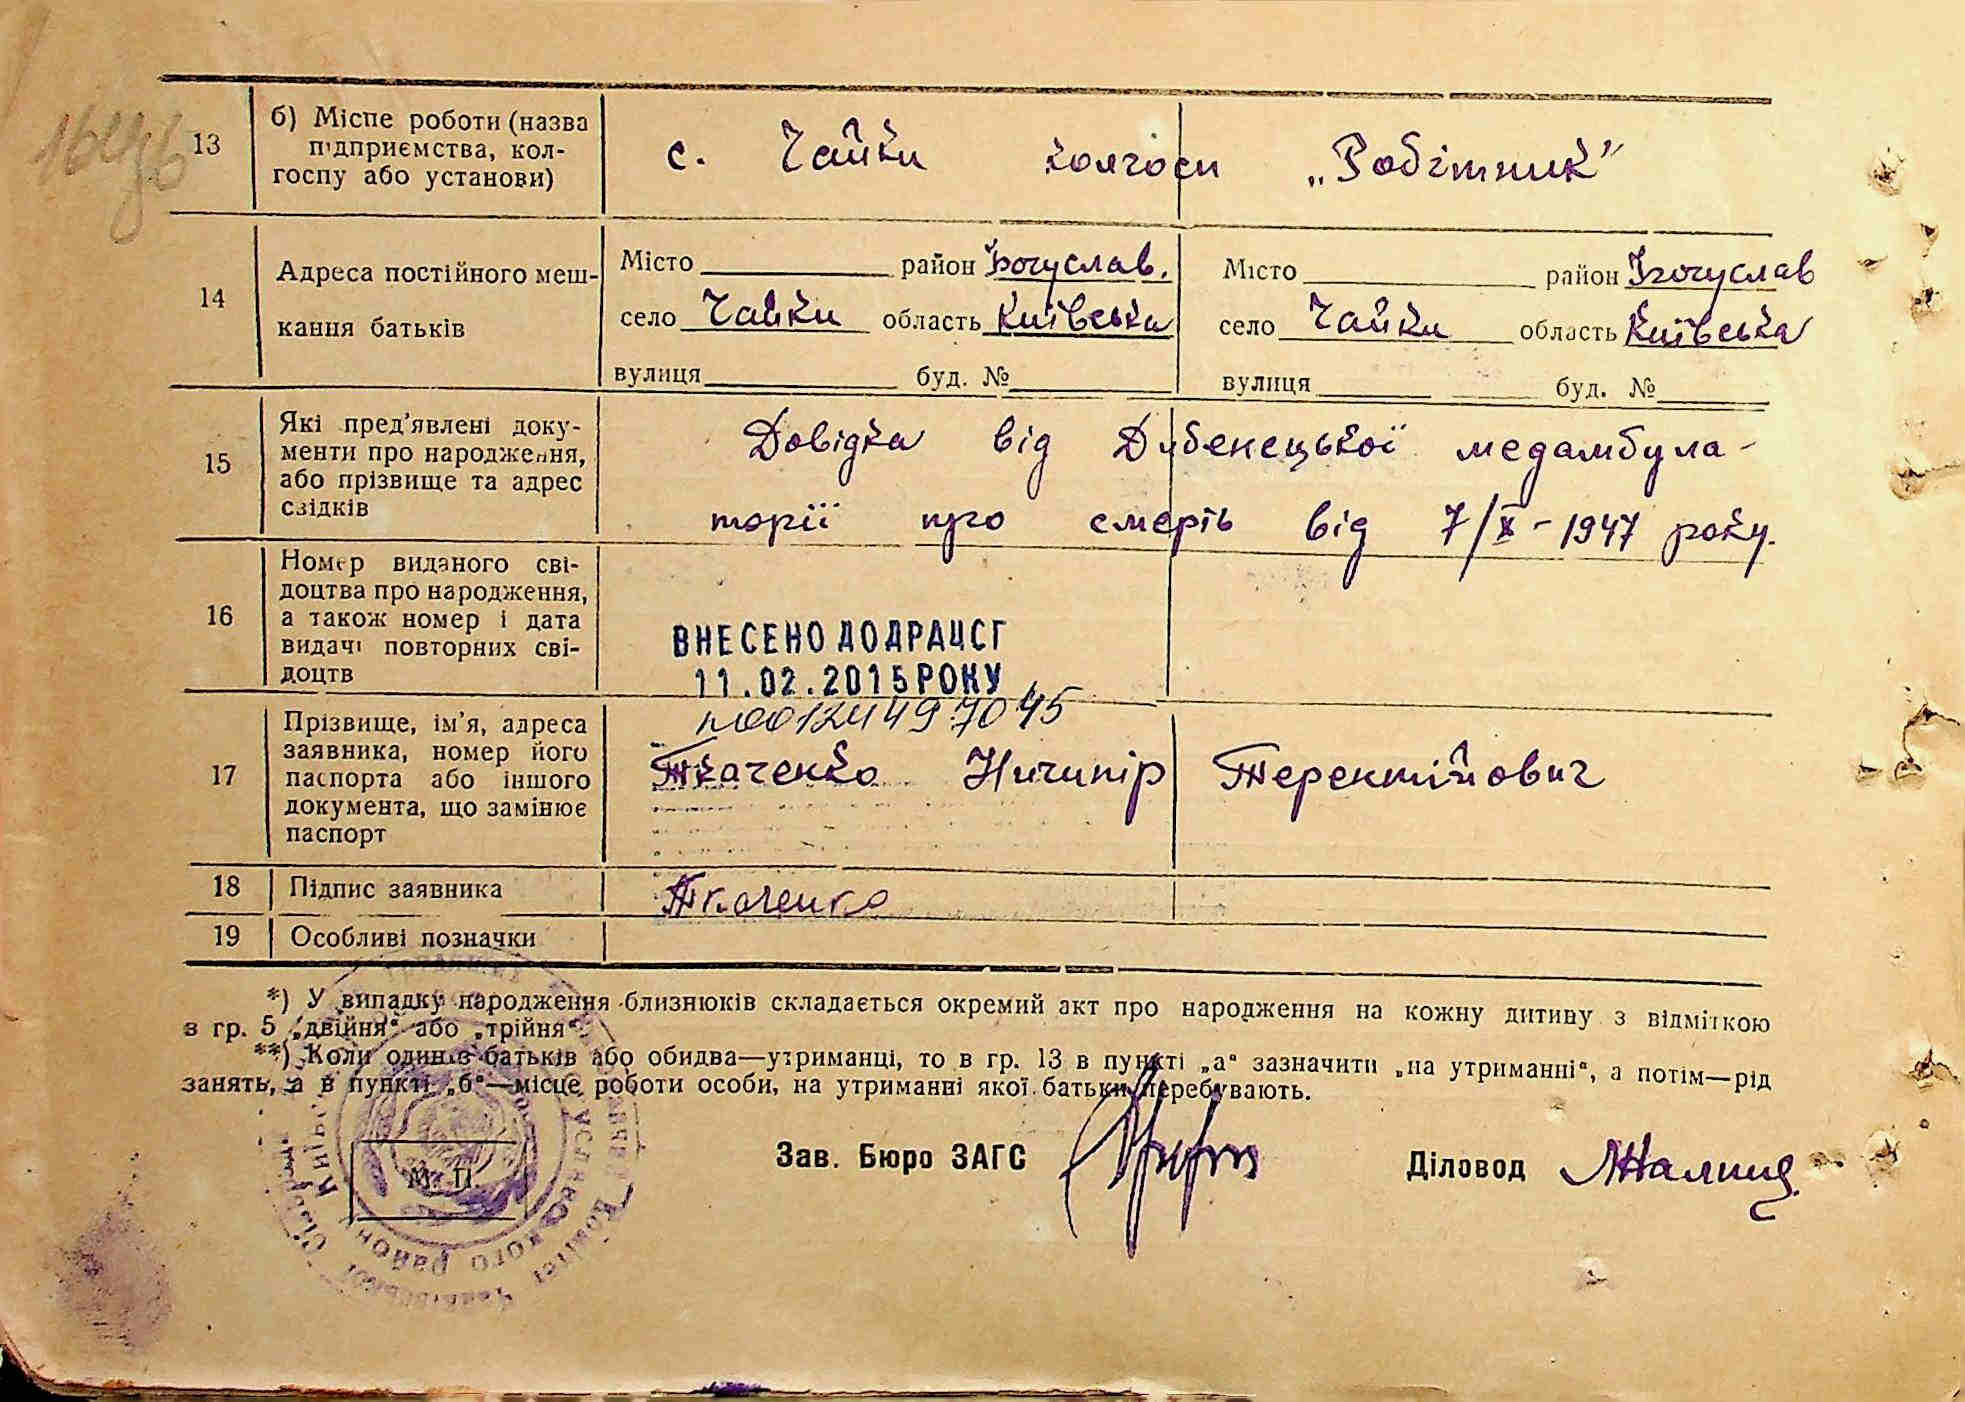 13
б) Місце роботи (назва
підприємства, кол-
госпу або установи)
с. Чайки колгосп „Робітник"
14
Адреса постійного меш-
кання батьків
Місто район Богуслав.
село Чайки область Київська
вулиця буд. №
Місто район Богуслав
село Чайки область Київська
вулиця буд. №
15
Які пред'явлені доку-
менти про народження,
або прізвище та адрес
свідків
Довідка від Дубенецької медамбула-
торії про смерть від 7/X - 1947 року.
16
Номер виданого сві-
доцтва про народження,
а також номер і дата
видачі повторних сві-
доцтв
ВНЕСЕНО ДО ДРАЦСГ
11.02.2015 РОКУ
n00124497045
17
Прізвище, ім'я, адреса
заявника, номер його
паспорта або іншого
документа, що замінює
паспорт
Ткаченко Ничипір Терентійович
18
Підпис заявника
Ткаченко
19
Особливі позначки
*) У випадку народження близнюків складається окремий акт про народження на кожну дитину з відміткою
в гр. 5 „двійня" або „трійня".
**) Коли один із батьків або обидва—утриманці, то в гр. 13 в пункті „а" зазначити „на утриманні", а потім—рід
занять, а в пункті „б"—місце роботи особи, на утриманні якої батьки перебувають.
М. П.
Зав. Бюро ЗАГС
Діловод